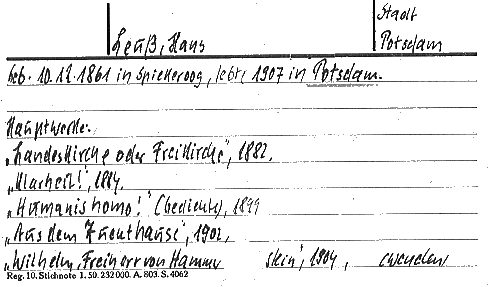 Stadt
Potsdam
Leuß, Hans
Geb. 10.12.1861 in Spiekeroog, lebte 1907 in Potsdam.
Hauptwerke:
„Landeskirche oder Freikirche", 1882.
„Klarheit!", 1884.
„Humanis homo!" (Gedichte), 1899
„Aus dem Zuchthause", 1902.
„Wilhelm, Freiherr von Hammerstein", 1904,
Reg. 10. Stichnote 1. 50. 232000. A. 803. S. 4062